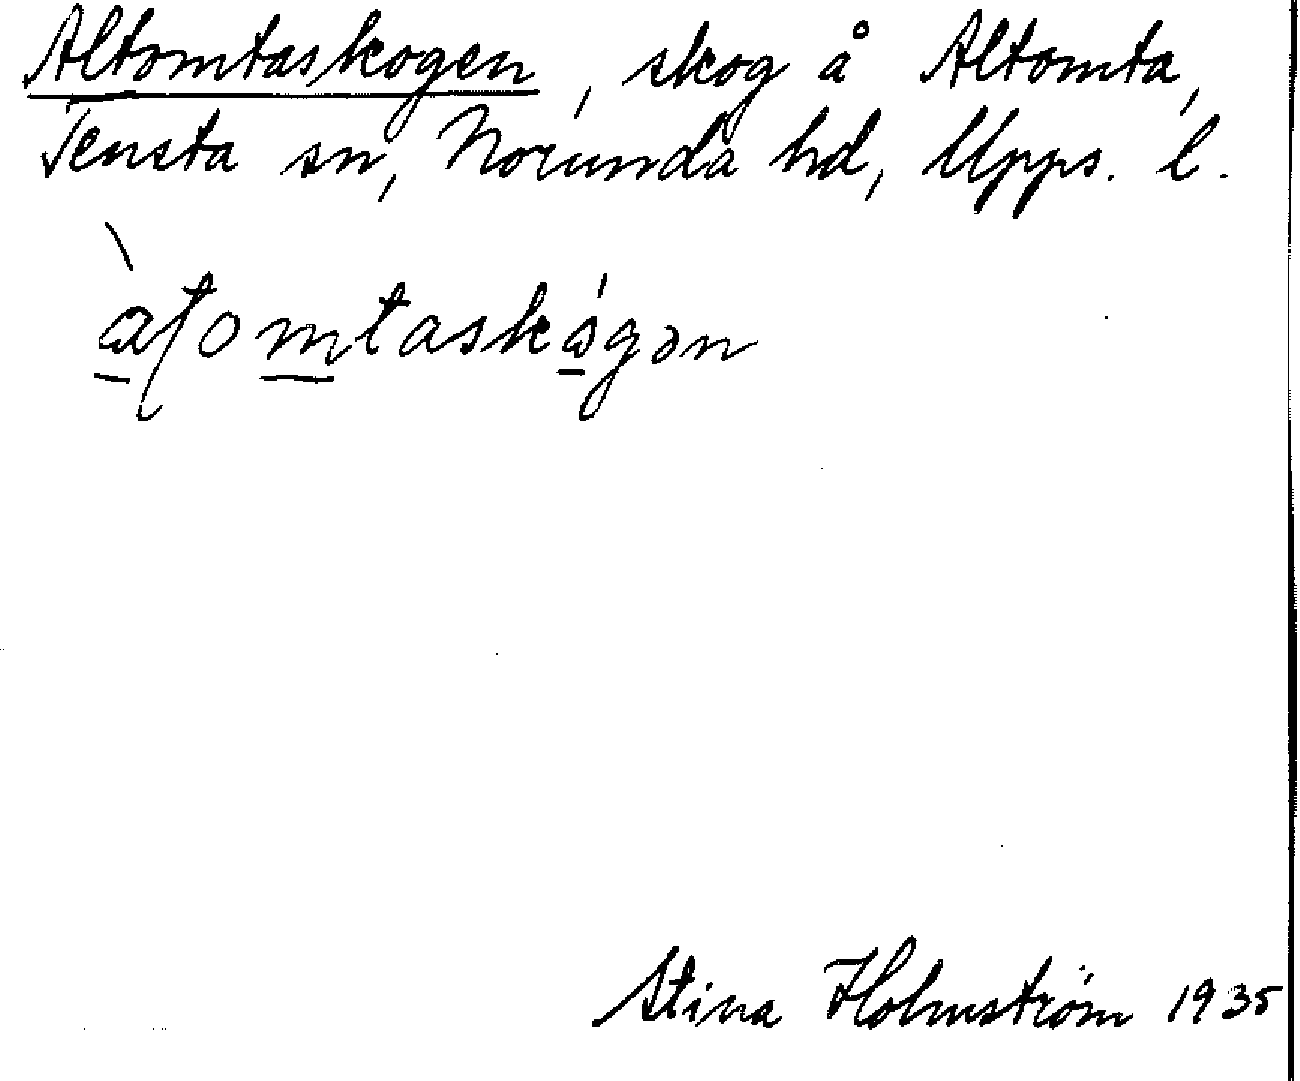 Altomtaskogen, skog å Altomta,
Tensta sn, Norunda hd, Upps. l.
Stina Holmström 1935